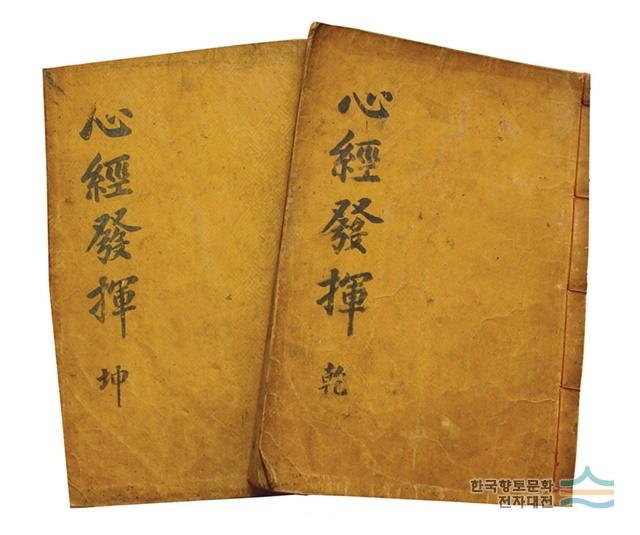 心經發揮
坤
心經發揮
乾
한국향토문화
전자대전